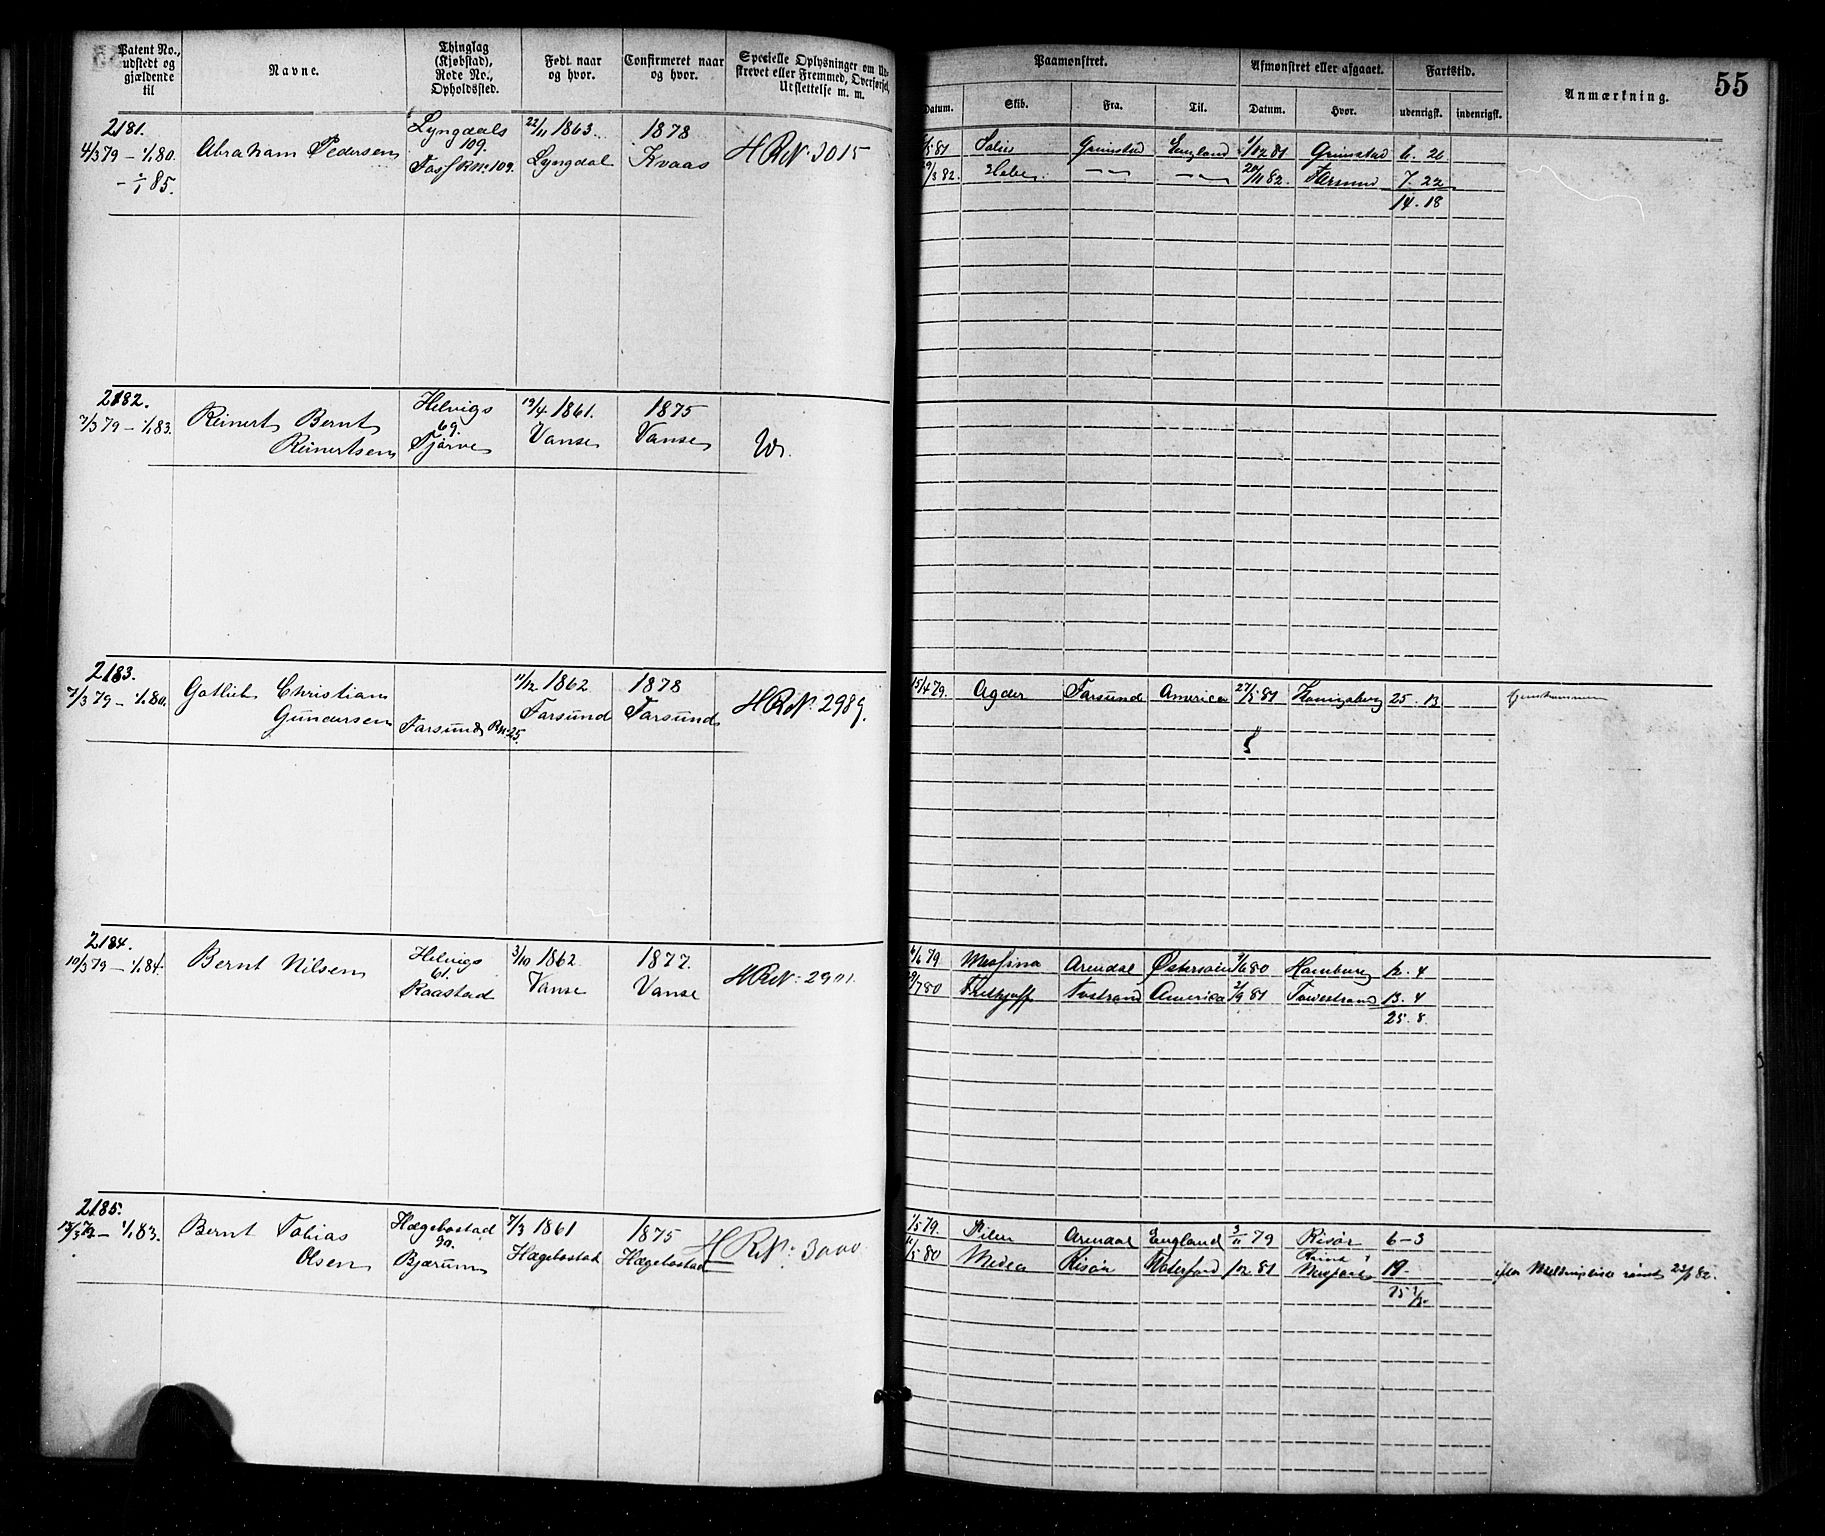 Patent No., udstedt og gjældende til
Navne.
Thinglag (Kjøbstad), Rode No., Opholdssted.
Født naar og hvor.
Confirmeret naar og hvor.
Specielle Oplysninger om Udskrevet eller Fremmed, Overførsel, Udslettelse m. m.
Paamønstret.
Afmønstret eller afgaaet.
Fartstid.
Anmærkning.
55
Datum.
Skib.
Fra.
Til.
Datum.
Hvor.
udenrigsk.
indenrigsk.
2181.
4/3 79 - 1/1 80.
- 1/1 85.
Abraham Pedersen
Lyngdals
109.
22/11 1863.
Lyngdal
1878
Kvaas
H R No. 3015
Grimstad England 1/12 81 Grimstad 6. 26
9/3 82. Hebe 20/11 82. 7. 22
14. 18
2182.
7/3 79 - 1/1 83.
Reinert Bernt
Reinertsen
Helvigs
69.
Tjørve
19/4 1861.
Vanse
1875
Vanse
2183.
7/3 79 - 1/1 80.
Gotlieb Christian
Gundersen
Farsund R No 25.
11/12 1862
Farsund
1878
Farsund
H R No. 2989.
15/4 79. Agder Farsund America 27/5 81 Königsberg 25. 13
2184.
10/3 79 - 1/1 84.
Bernt Nilsen
Helvigs
61.
Raastad
3/10 1862
Vanse
1877.
Vanse
H R No. 2901.
6/6 79 Arendal Østersøen 3/6 80 Hamburg 12. 4
9/7 80 Frithjoff Tvestrand America 2/9 81 13. 4
25. 8.
2185.
13/3 79 - 1/1 83.
Bernt Tobias
Olsen
Hægebostad
90.
Bjærum
7/3 1861
Hægebostad
1875
Hægebostad
H R No: 3000
1/5 79. Arendal England 3/11 79 Risør 6-3
11/5 80 Medea Risør Waterford /12 81 19